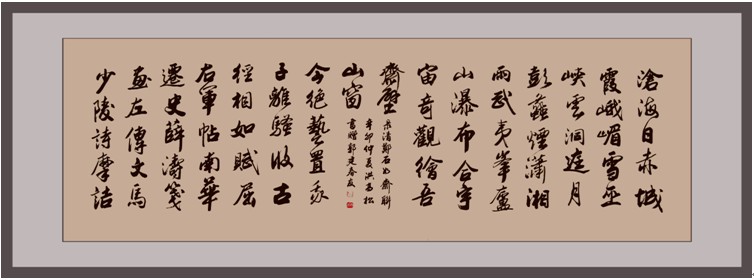 滄海日赤城
霞峨嵋雪巫
峽雲洞庭月
彭蠡煙瀟湘
雨武夷峯廬
山瀑布合宇
宙奇觀繪吾
齋壁
少陵詩摩詰
畫左傳文馬
遷史薛濤箋
右軍帖南華
經相如賦屈
子離騷收古
今絕藝置我
山窗
录清鄧石如齋聯
辛卯仲夏洪昌松
書贈郭建春友